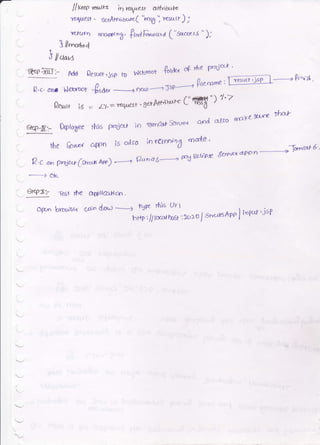 //keep results in request attribute
request. setAttribute("msg", result);
return mapping. findForward ("success");
} //method
} //class
Step-III:- Add Result.jsp to webroot folder of the project.
R.C on webroot folder → new → JSP → file name: Result.jsp → finish.
Result is = <%= request.getAttribute("msg") %>
Step-IV:- Deployee this project in Tomcat Server and also make sure that
the server appn is also in running mode.
R.C on project (StrutsApp) → Run as → my eclipse server appn → Tomcat 6.
→ ok
Step-V:- Test the application.
open browser window → type this url
http://localhost:2020/StrutsApp/Input.jsp